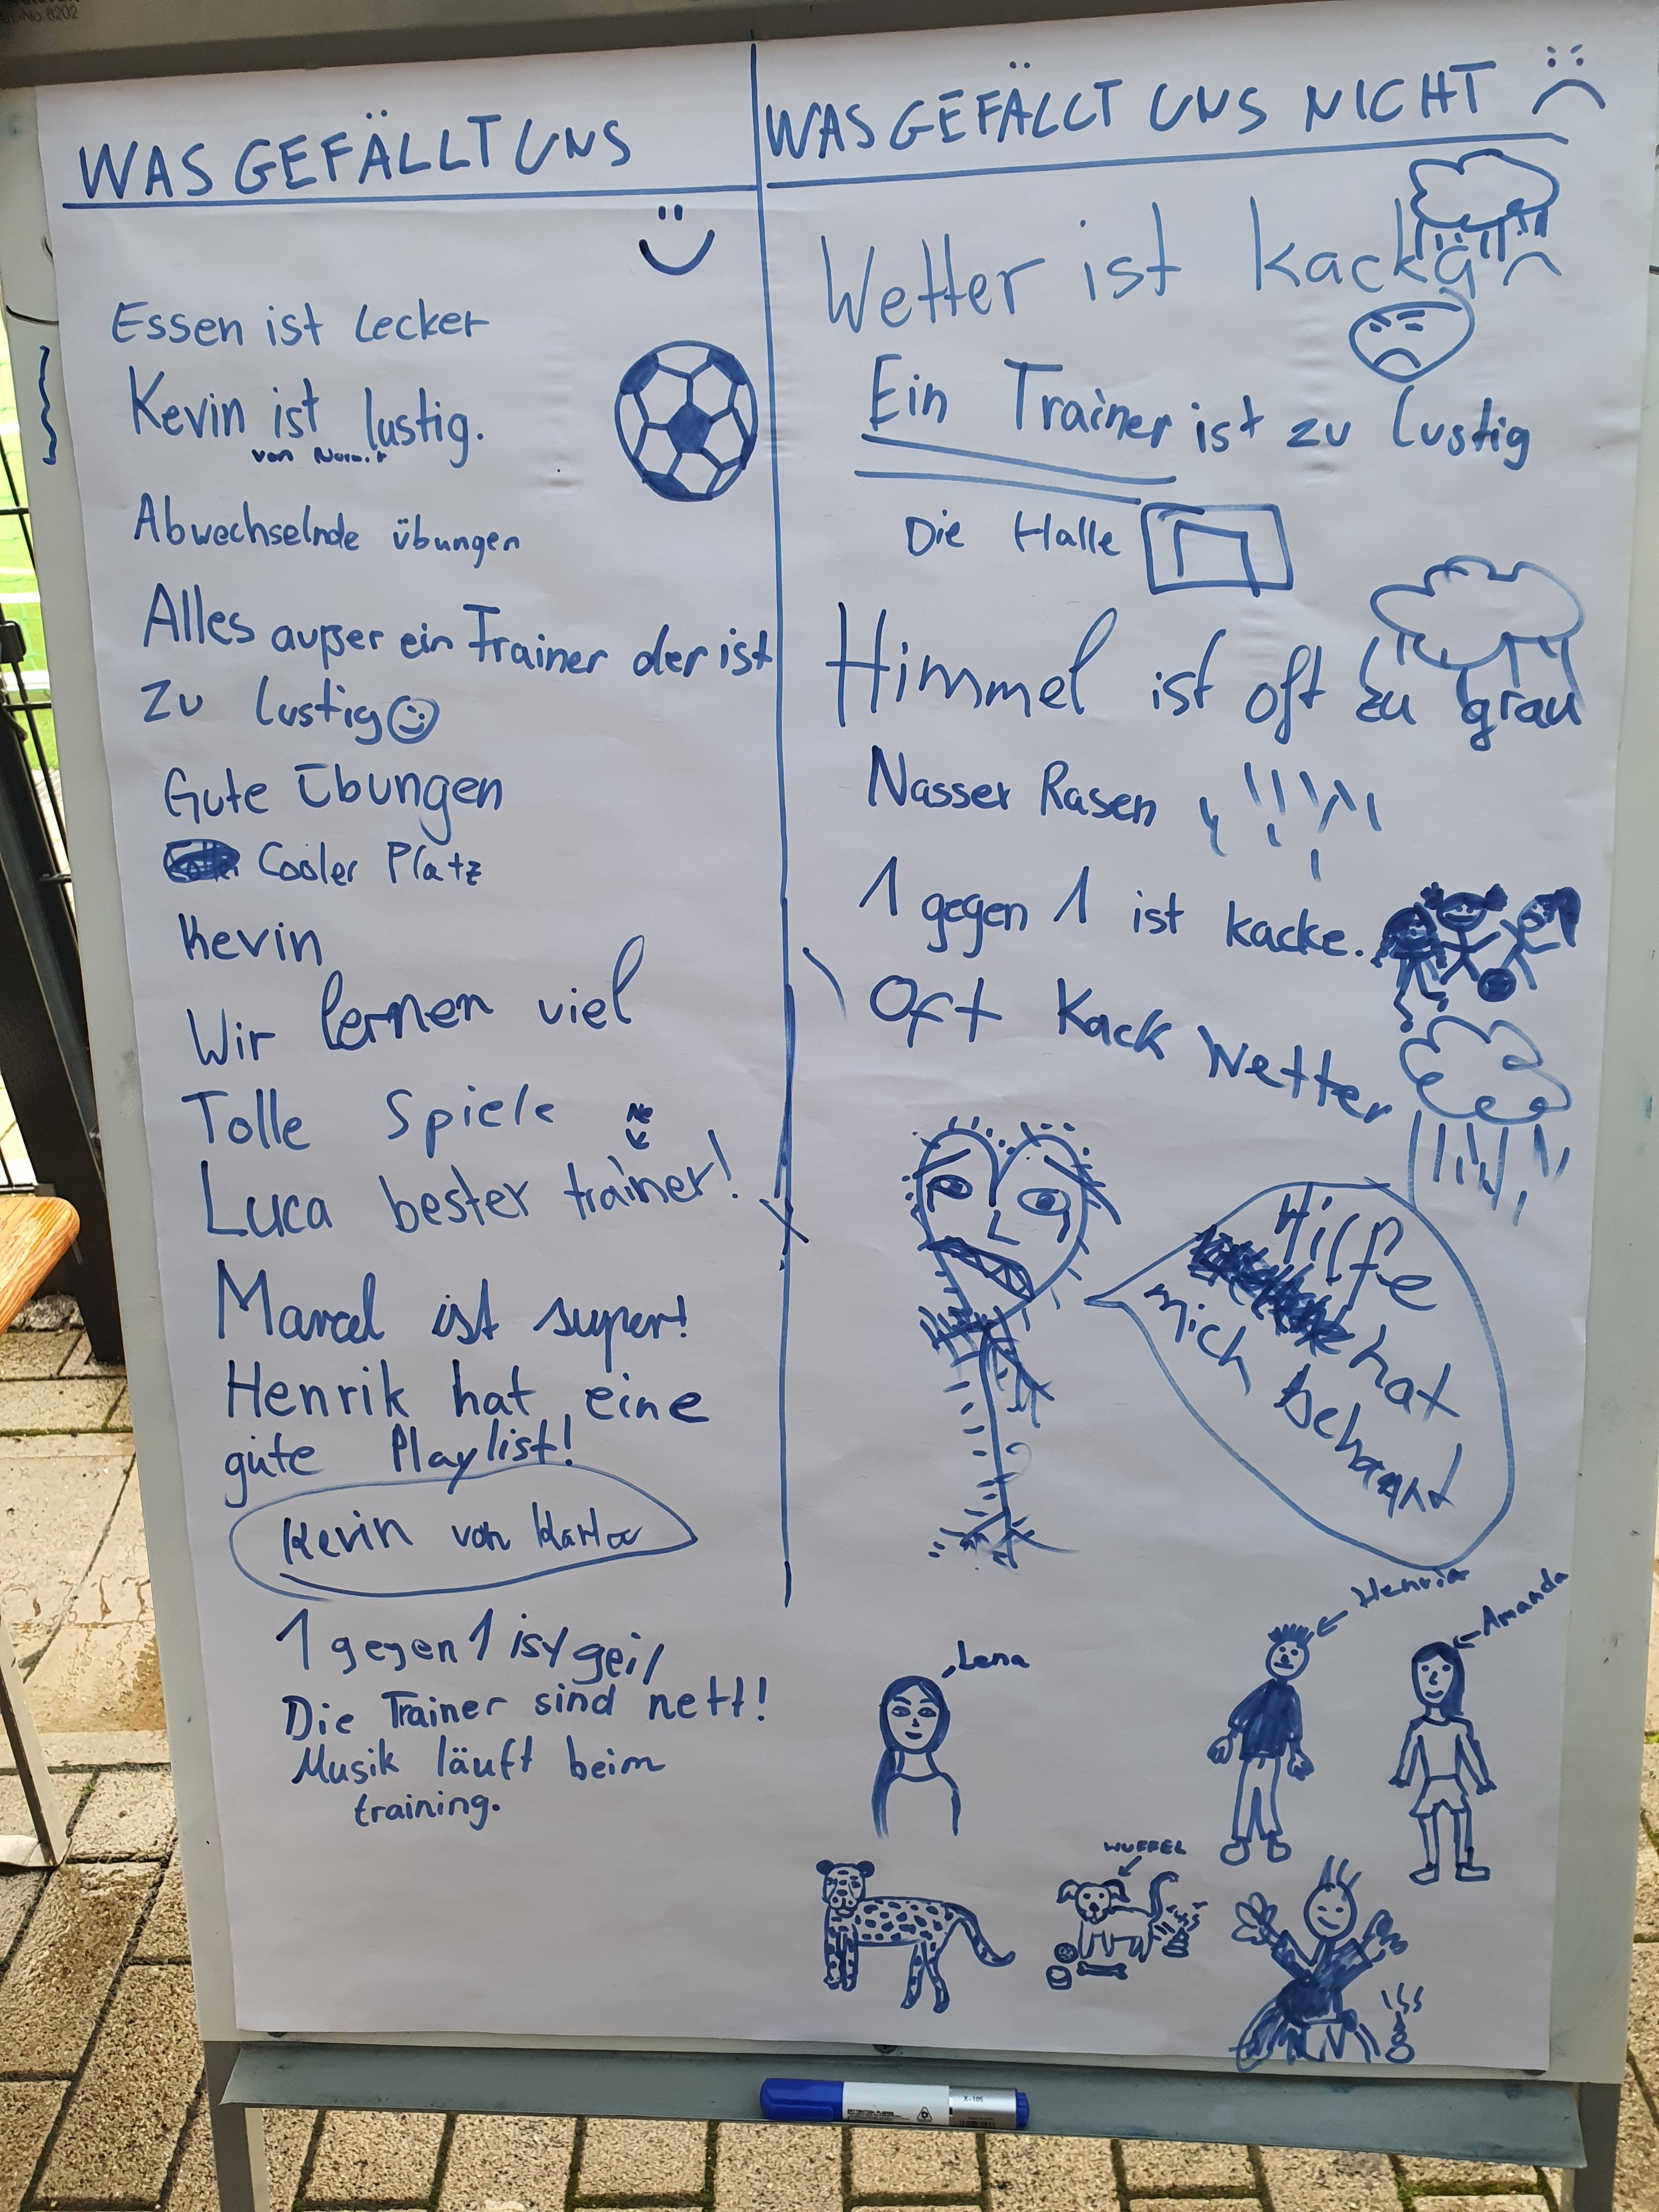 WAS GEFÄLLT UNS
Essen ist lecker
Kevin ist lustig.
von
Abwechselnde übungen
Alles außer ein Trainer der ist
zu lustig
Gute Übungen
Cooler Platz
Kevin
Wir lernen viel
Tolle Spiele
Ne
Luca bester trainer!
Marcel ist super!
Henrik hat eine
gute Playlist!
Kevin von
1 gegen 1 ist geil
Die Trainer sind nett!
Musik läuft beim
training.
WAS GEFÄLLT UNS NICHT
Wetter ist kacka
Ein Trainer ist zu lustig
Die Halle
Himmel ist oft zu grau
Nasser Rasen
1 gegen 1 ist kacke.
Oft Kack Wetter
Hilfe
hat
mich behaart
Lena
Amanda
WUFFEL
X-105